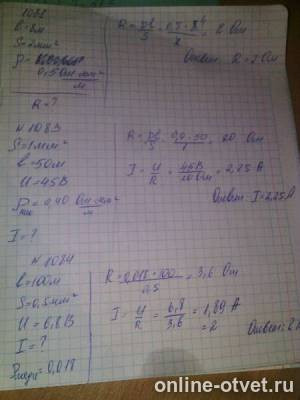 1082
l=8м
S=2мм²
ρ=
0,5 Ом·мм²
м
R=?
R = ρl/S = 0,5·8/2 = 2 Ом
Ответ: R=2 Ом
N 1083
S=1мм²
l=50м
U=45В
ρ = 0,40 Ом·мм²/м
I=?
R = ρl/S = 0,4·50/1 = 20 Ом
I = U/R = 45В/20 Ом = 2,25 А
Ответ: I=2,25А
N 1084
l=100м
S=0,5мм²
U=6,8В
I=?
ρмеди=0,018
R = 0,018·100/0,5 = 3,6 Ом
I = U/R = 6,8/3,6 = 1,89 А
=2
Ответ: 2А
online-otvet.ru